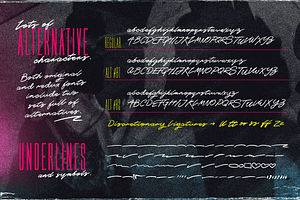 Lots of
ALTERNATIVE
characters
Both original
and redux fonts
include two
sets full of
alternatives
REGULAR
abcdefghijklmnopqrstuvwxyz
ABCDEFGHIJKLMNOPQRSTUVWXYZ
ALT #1
abcdefghijklmnopqrstuvwxyz
ABCDEFGHIJKLMNOPQRSTUVWXYZ
ALT #2
abcdefghijklmnopqrstuvwxyz
ABCDEFGHIJKLMNOPQRSTUVWXYZ
Discretionary ligatures →
UNDERLINES
and symbols